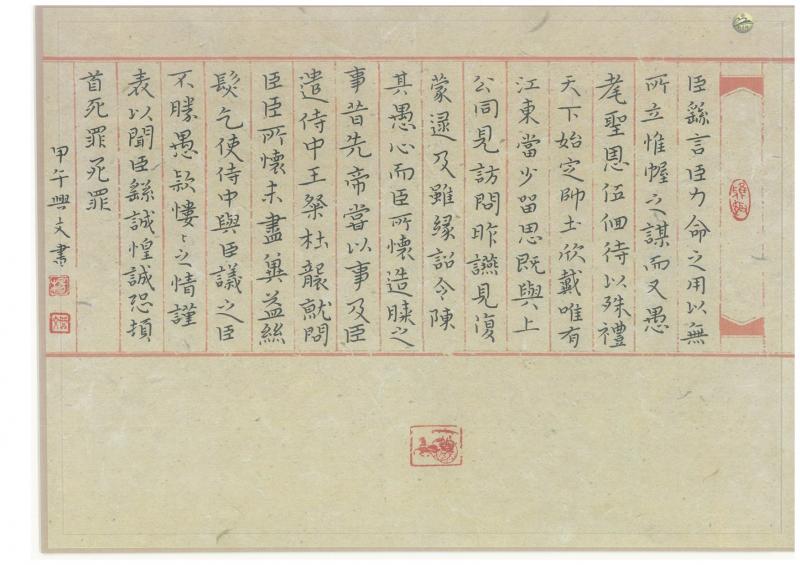 臣繇言臣力命之用以無
所立惟幄之謀而又愚
耄聖恩伍佪待以殊禮
天下始定帥土欣戴唯有
江東當少留思既與上
公同見訪問昨讌見復
蒙逮及雖緣詔令陳
其愚心而臣所懷造膝之
事昔先帝嘗以事及臣
遣侍中王粲杜襲就問
臣臣所懷未盡冀益絲
髮乞使侍中與臣議之臣
不勝愚款慺〻之情謹
表以聞臣繇誠惶誠恐頓
首死罪死罪
甲午興文書